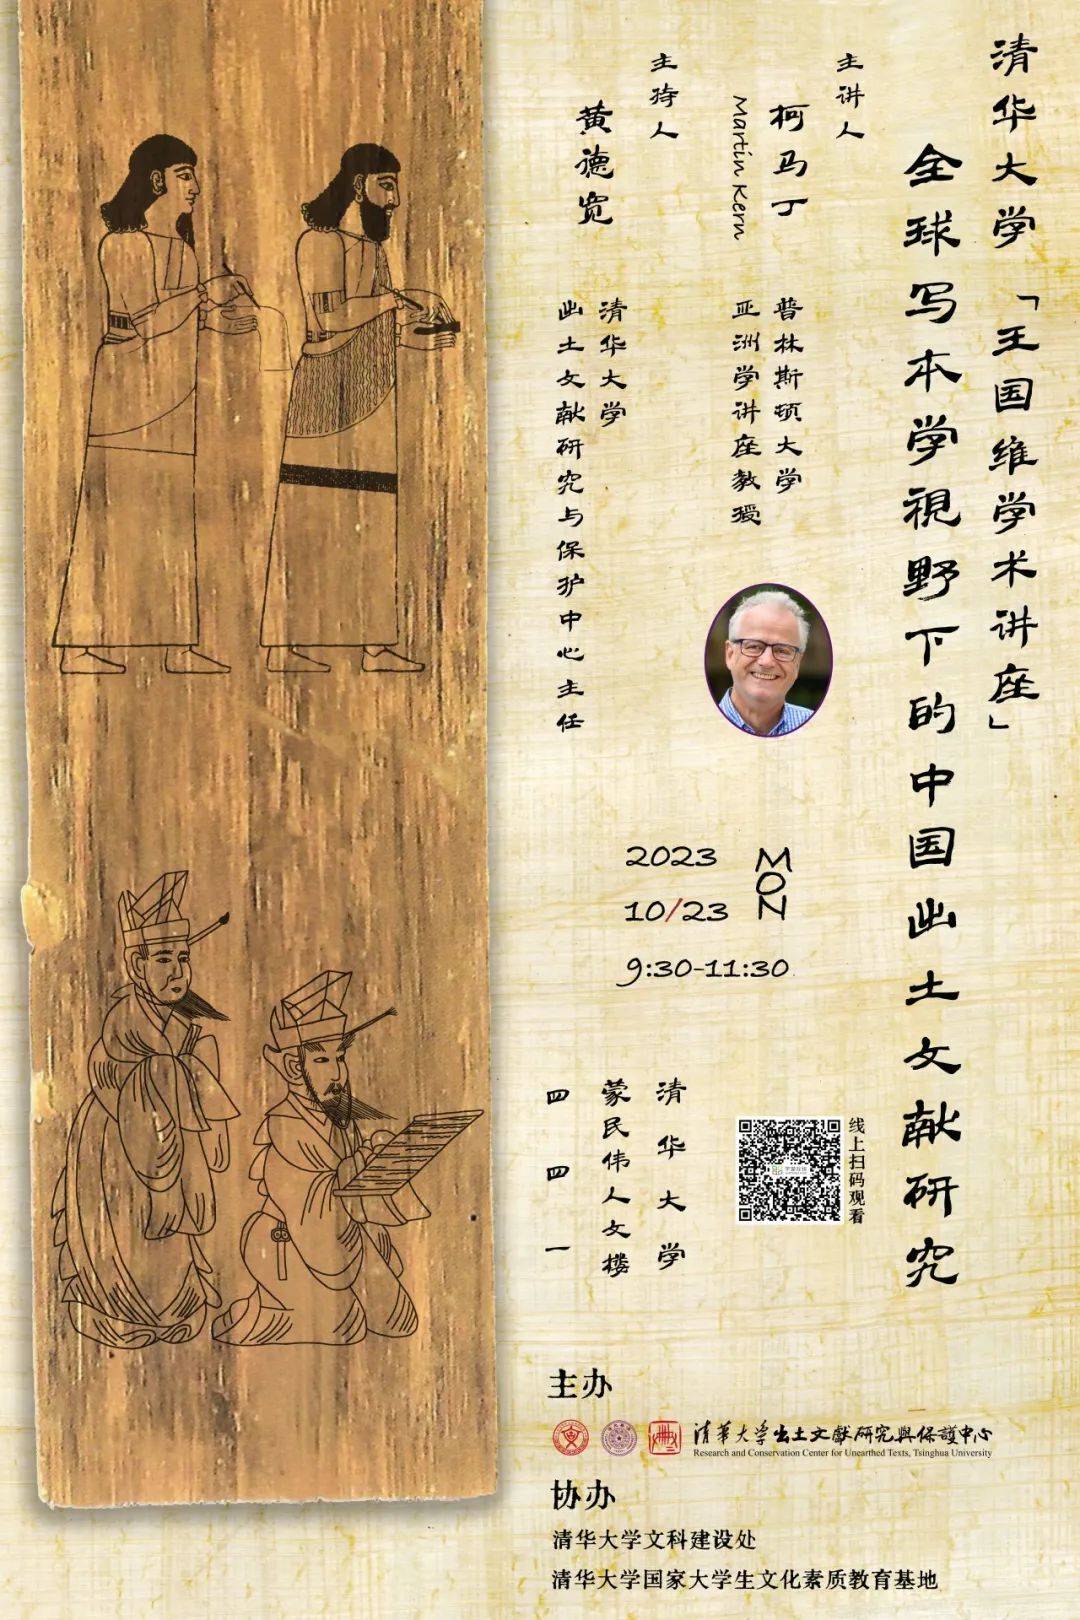 清华大学「王国维学术讲座」
全球写本学視野下的中国出土文献研究
主讲人
柯马丁
Martin Kern
普林斯顿大学
亚洲学讲座教授
主持人
黄德宽
清华大学
出土文献研究与保护中心主任
2023
10/23
MON
9:30-11:30
线上扫码观看
清华大学
蒙民伟人文楼
四四一
主办
清華大学出土文獻研究與保護中心
Research and Conservation Center for Unearthed Texts, Tsinghua University
协办
清华大学文科建设处
清华大学国家大学生文化素质教育基地